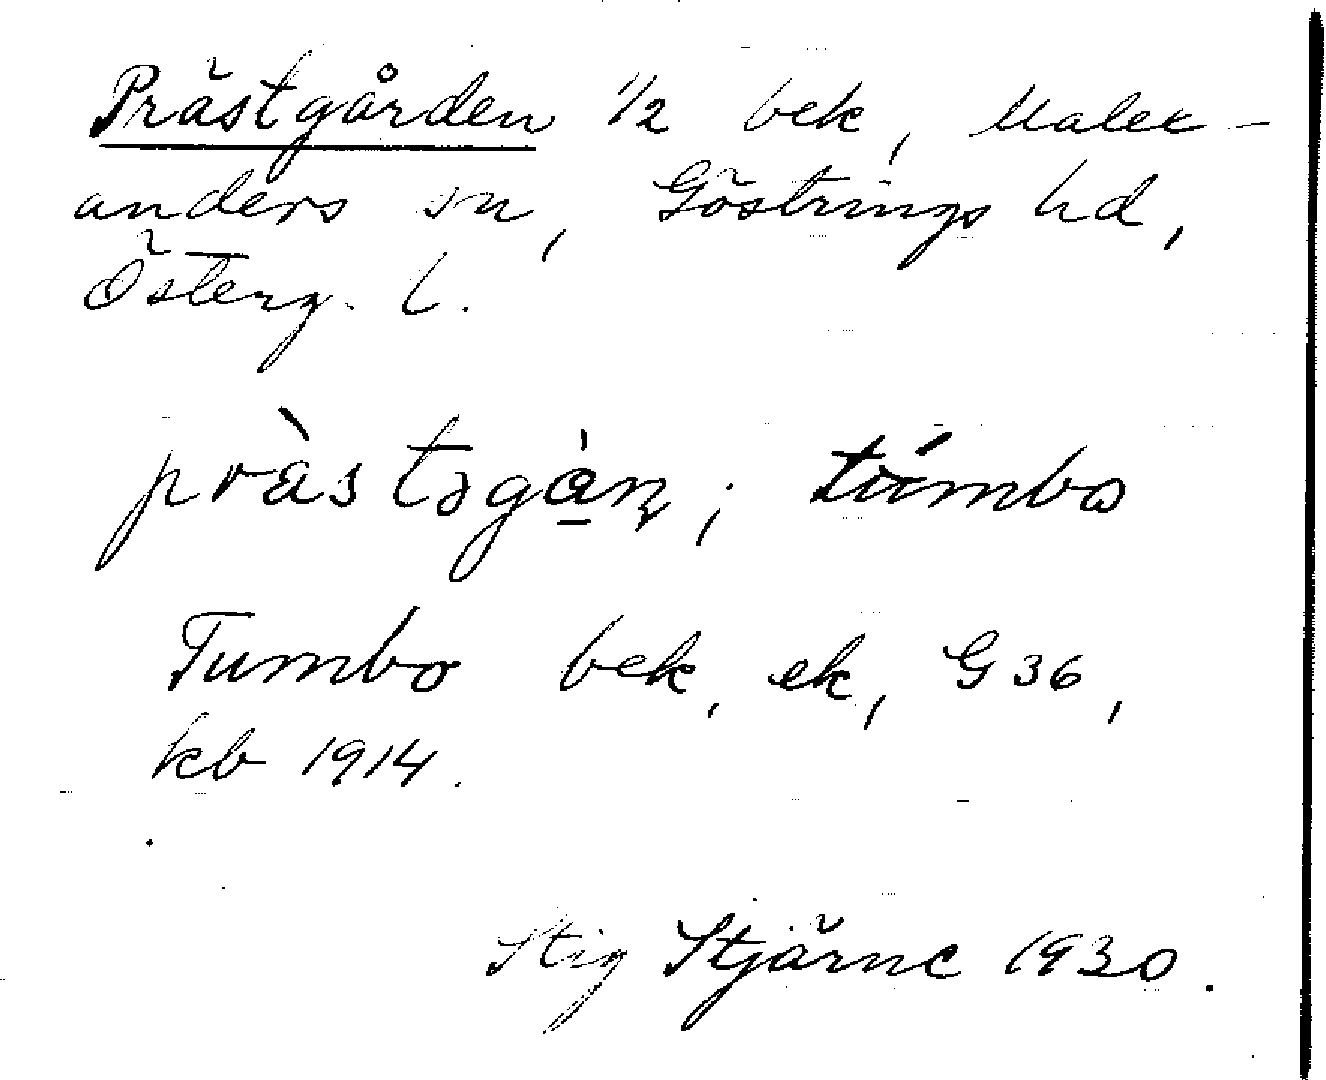 Prästgården 1/2 bek, Malex-
anders sn, Göstrings hd,
Österg. l.
pràstəgàṇ; túmbo
Tumbo bek, ek, G 36,
kb 1914.
Stig Stjärne 1930.